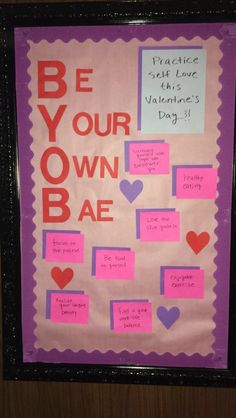 Be
Your
Own
Bae
Practice
self love
this
Valentine's
Day !!
Surround
yourself with
people who
appreciate
you
healthy
eating
Love the
skin you're in
Focus on
the present
Be kind
to yourself
enjoyable
exercise
Realize your
beauty
Find a good
work-life
balance